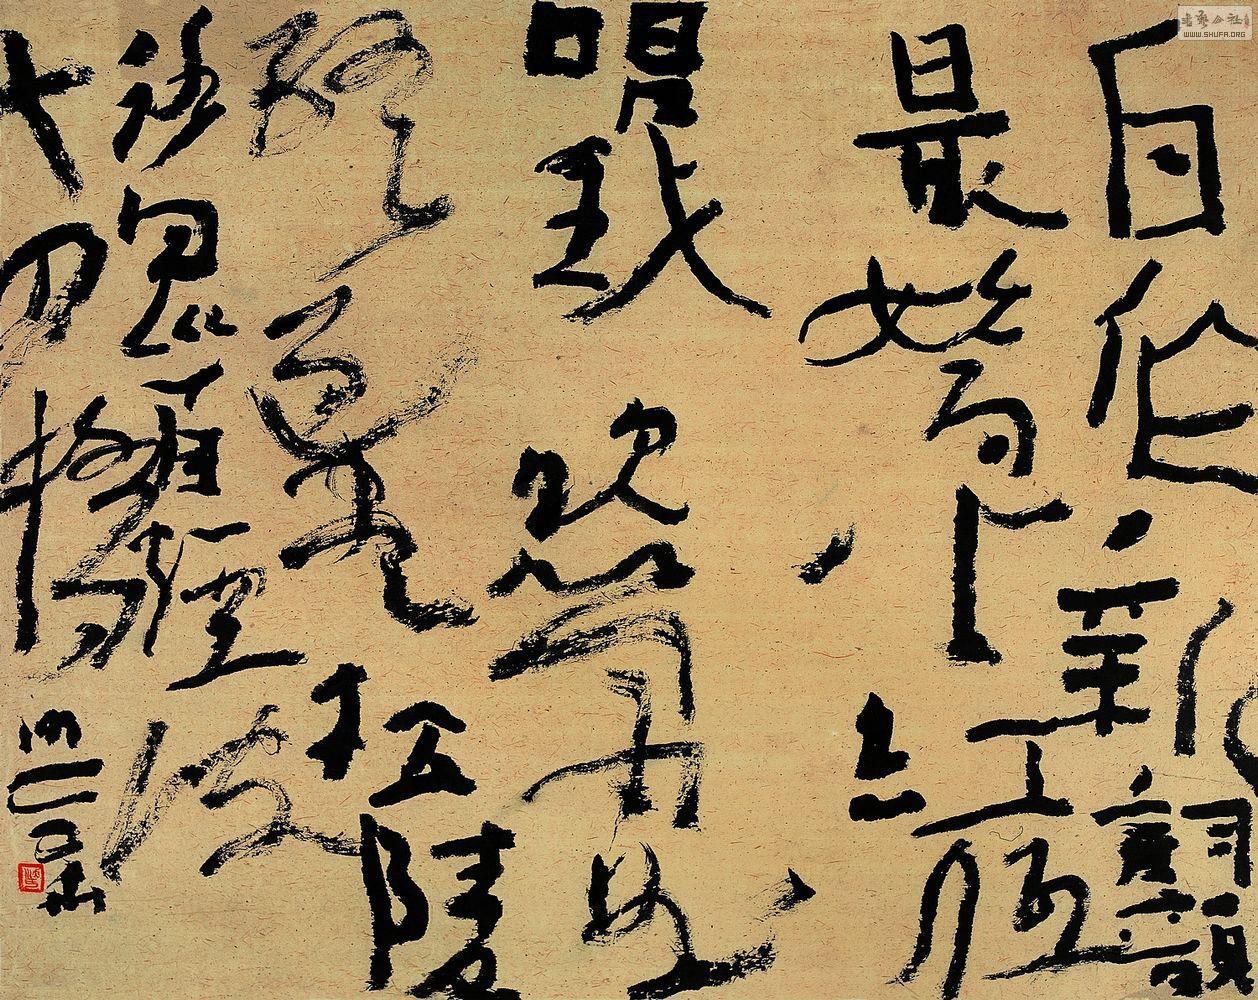 自作新詞韻
最嬌小紅低
唱我吹簫曲
終過盡松陵
路回首煙波
十四橋
書藝公社
WWW.SHUFA.ORG